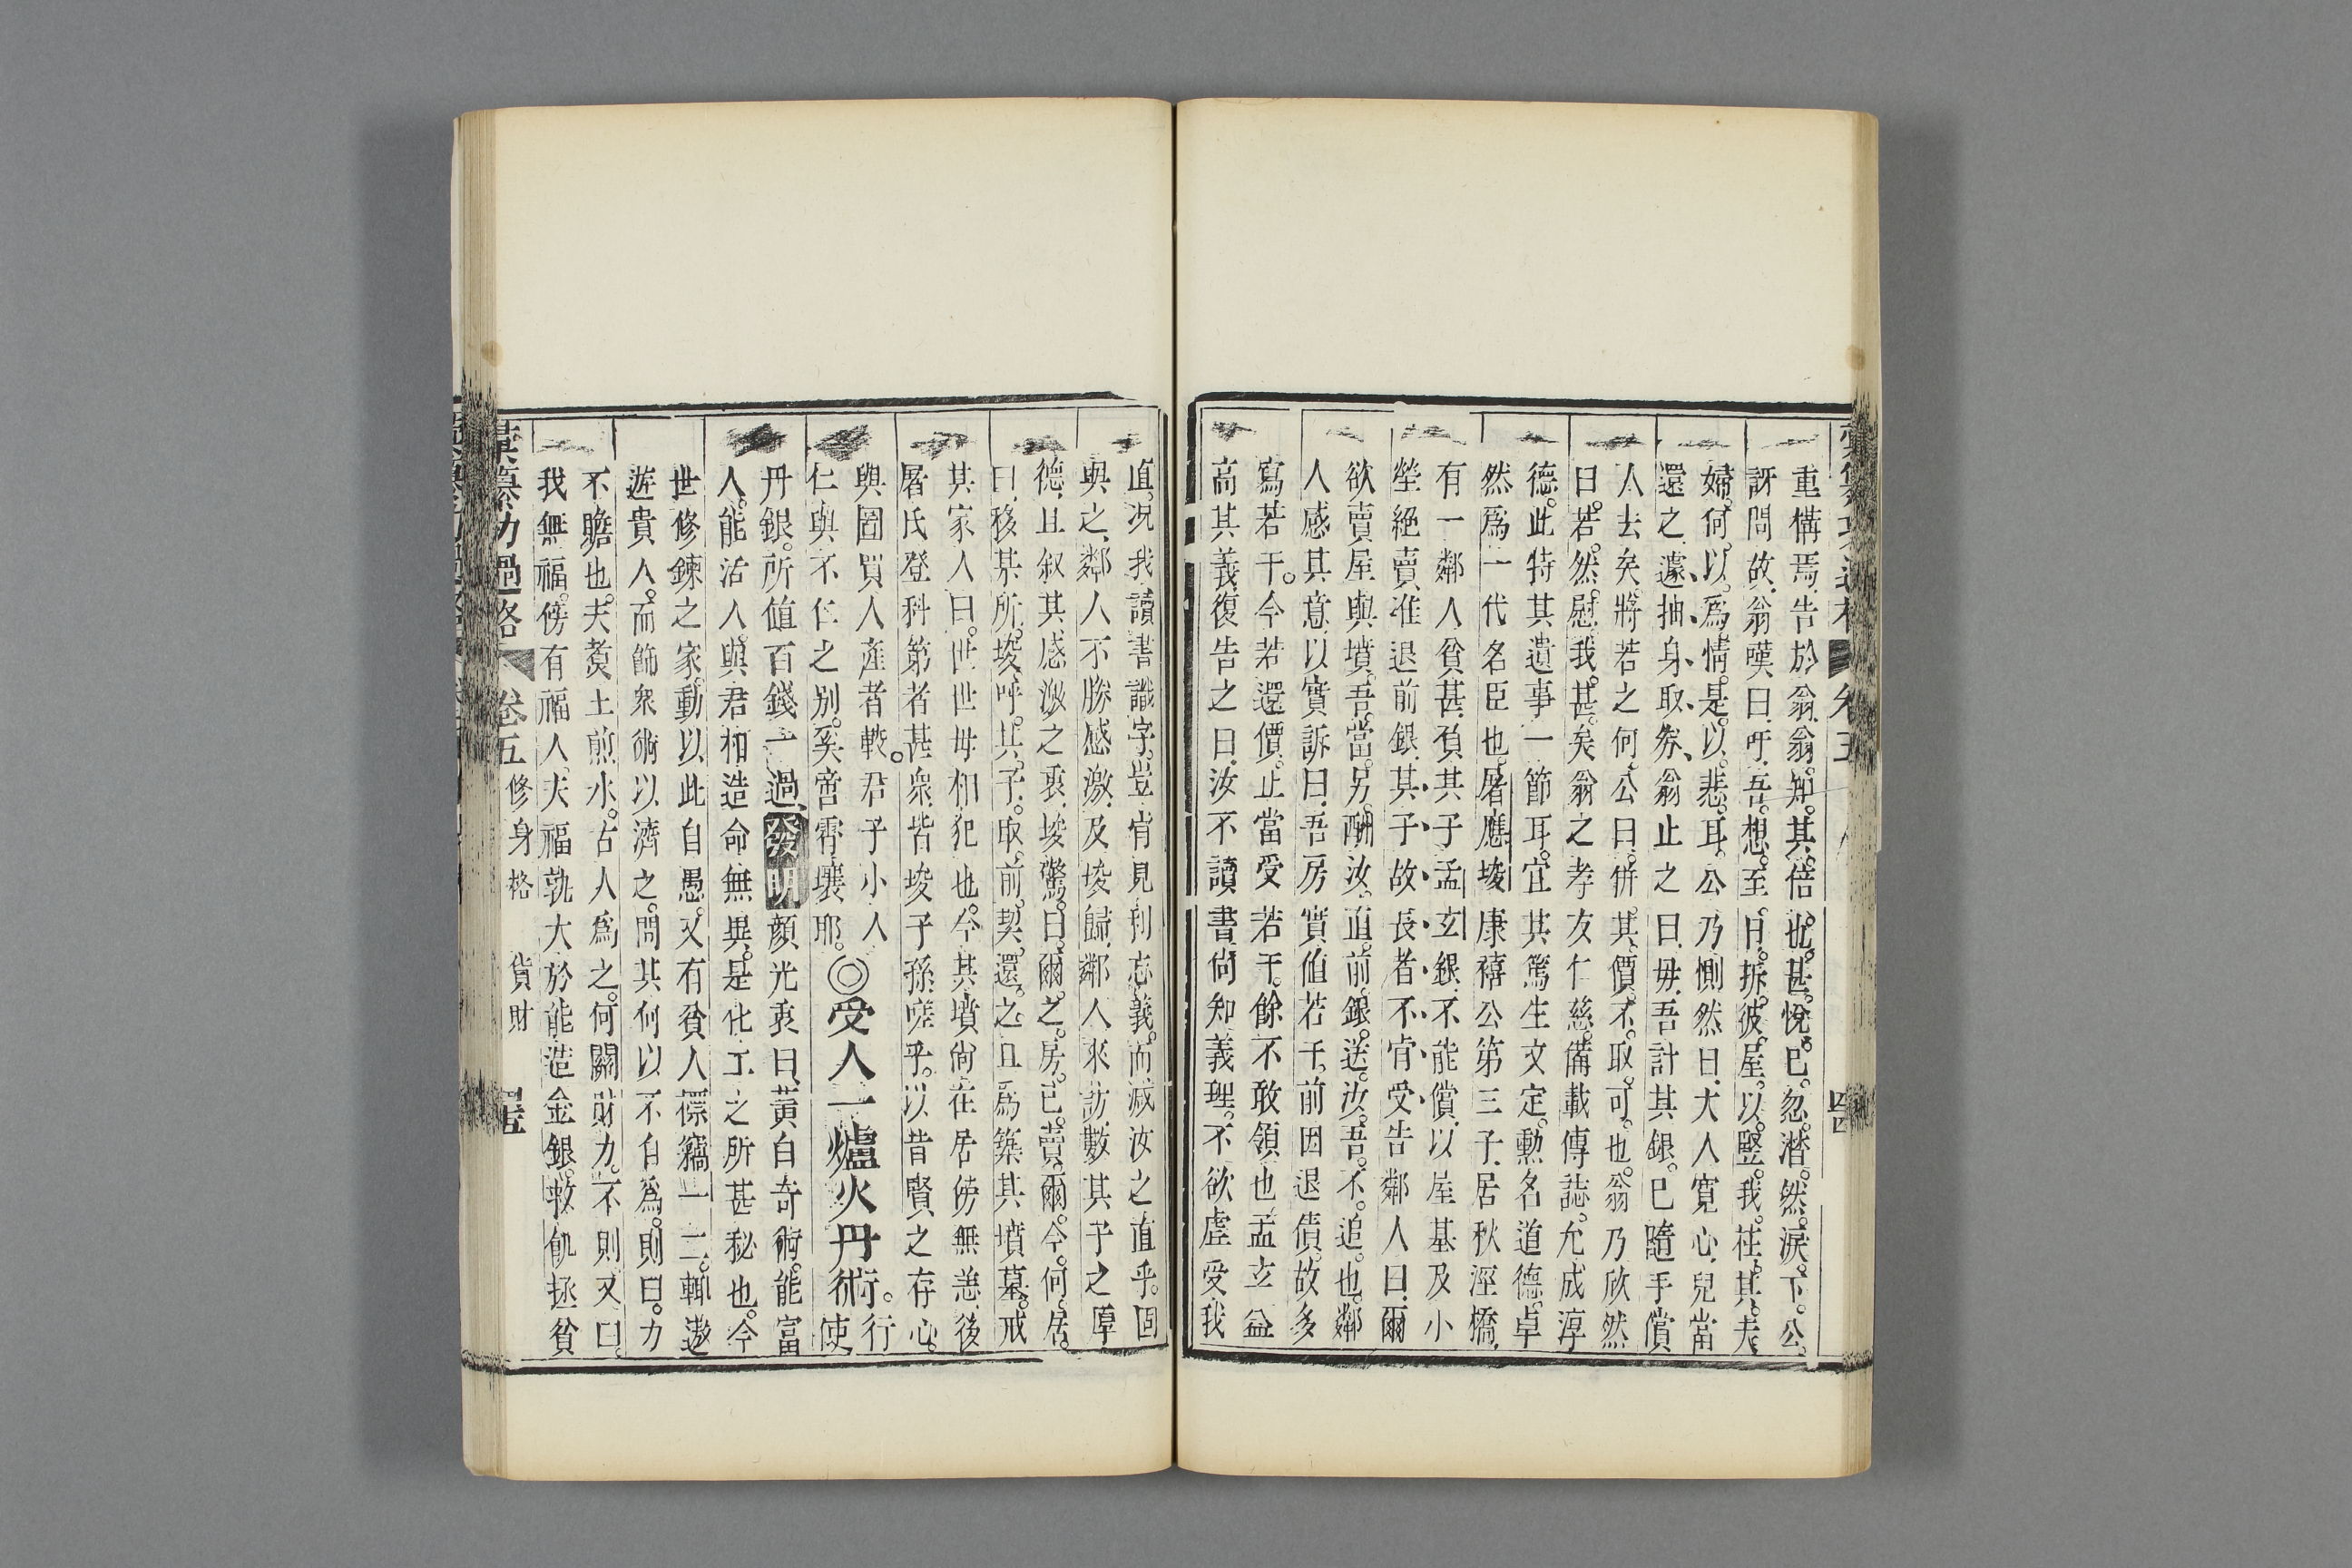 重構焉告於翁翁知其倍也甚悅已忽潜然淚下公
訝問故翁嘆曰吁吾想至日拆彼屋以竪我柱其夫
婦何以爲情是以悲耳公乃惻然曰大人寬心兒當
還之遽抽身取劵翁止之曰毋吾計其銀已隨手償
人去矣將若之何公曰倂其價不取可也翁乃欣然
曰若然慰我甚矣翁之孝友仁慈備載傳誌允成淳
德此特其遺事一節耳宜其篤生文定勳名道德卓
然爲一代名臣也屠應埈康禧公第三子居秋涇橋
有一鄰人貧甚負其子孟玄銀不能償以屋基及小
塋絕賣准退前銀其子故長者不肯受告鄰人曰爾
欲賣屋與墳吾當另酬汝直前銀送汝吾不追也鄰
人感其意以實訴曰吾房實值若干前因退債故多
寫若干今若還價止當受若干餘不敢領也孟玄益
高其義復告之曰汝不讀書尙知義理不欲虛受我
直况我讀書識字豈肯見利忘義而减汝之直乎固
與之鄰人不勝感激及埈歸鄰人來訪數其子之厚
德且叙其感激之衷埈驚曰爾之房已賣爾今何居
曰移某所埈呼其子取前契還之且爲築其墳墓戒
其家人曰世世毋相犯也今其墳尙在居傍無恙後
屠氏登科第者甚衆皆埈子孫嗟乎以昔賢之存心
與圖買人產者較君子小人
仁與不仁之別奚啻霄壤耶◎受人一爐火丹術行使
丹銀所值百錢一過發明顏光衷曰黃白奇術能富
人能活人與君相造命無異是化工之所甚秘也今
世修鍊之家動以此自愚又有貧人㯹竊一二輒遨
遊貴人而飾衆術以濟之問其何以不自爲則曰力
不贍也夫煑土煎水古人爲之何關財力不則又曰
我無福傍有福人夫福孰大於能造金銀救飢拯貧
彙纂功過格 卷五 修身格 貨財